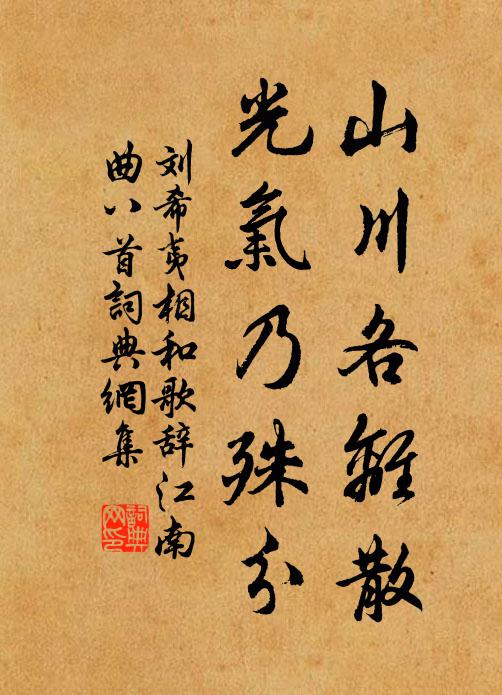 山川各離散
光氣乃殊分
刘希夷相和歌辞江南
曲八首詞典網集
詞典網印